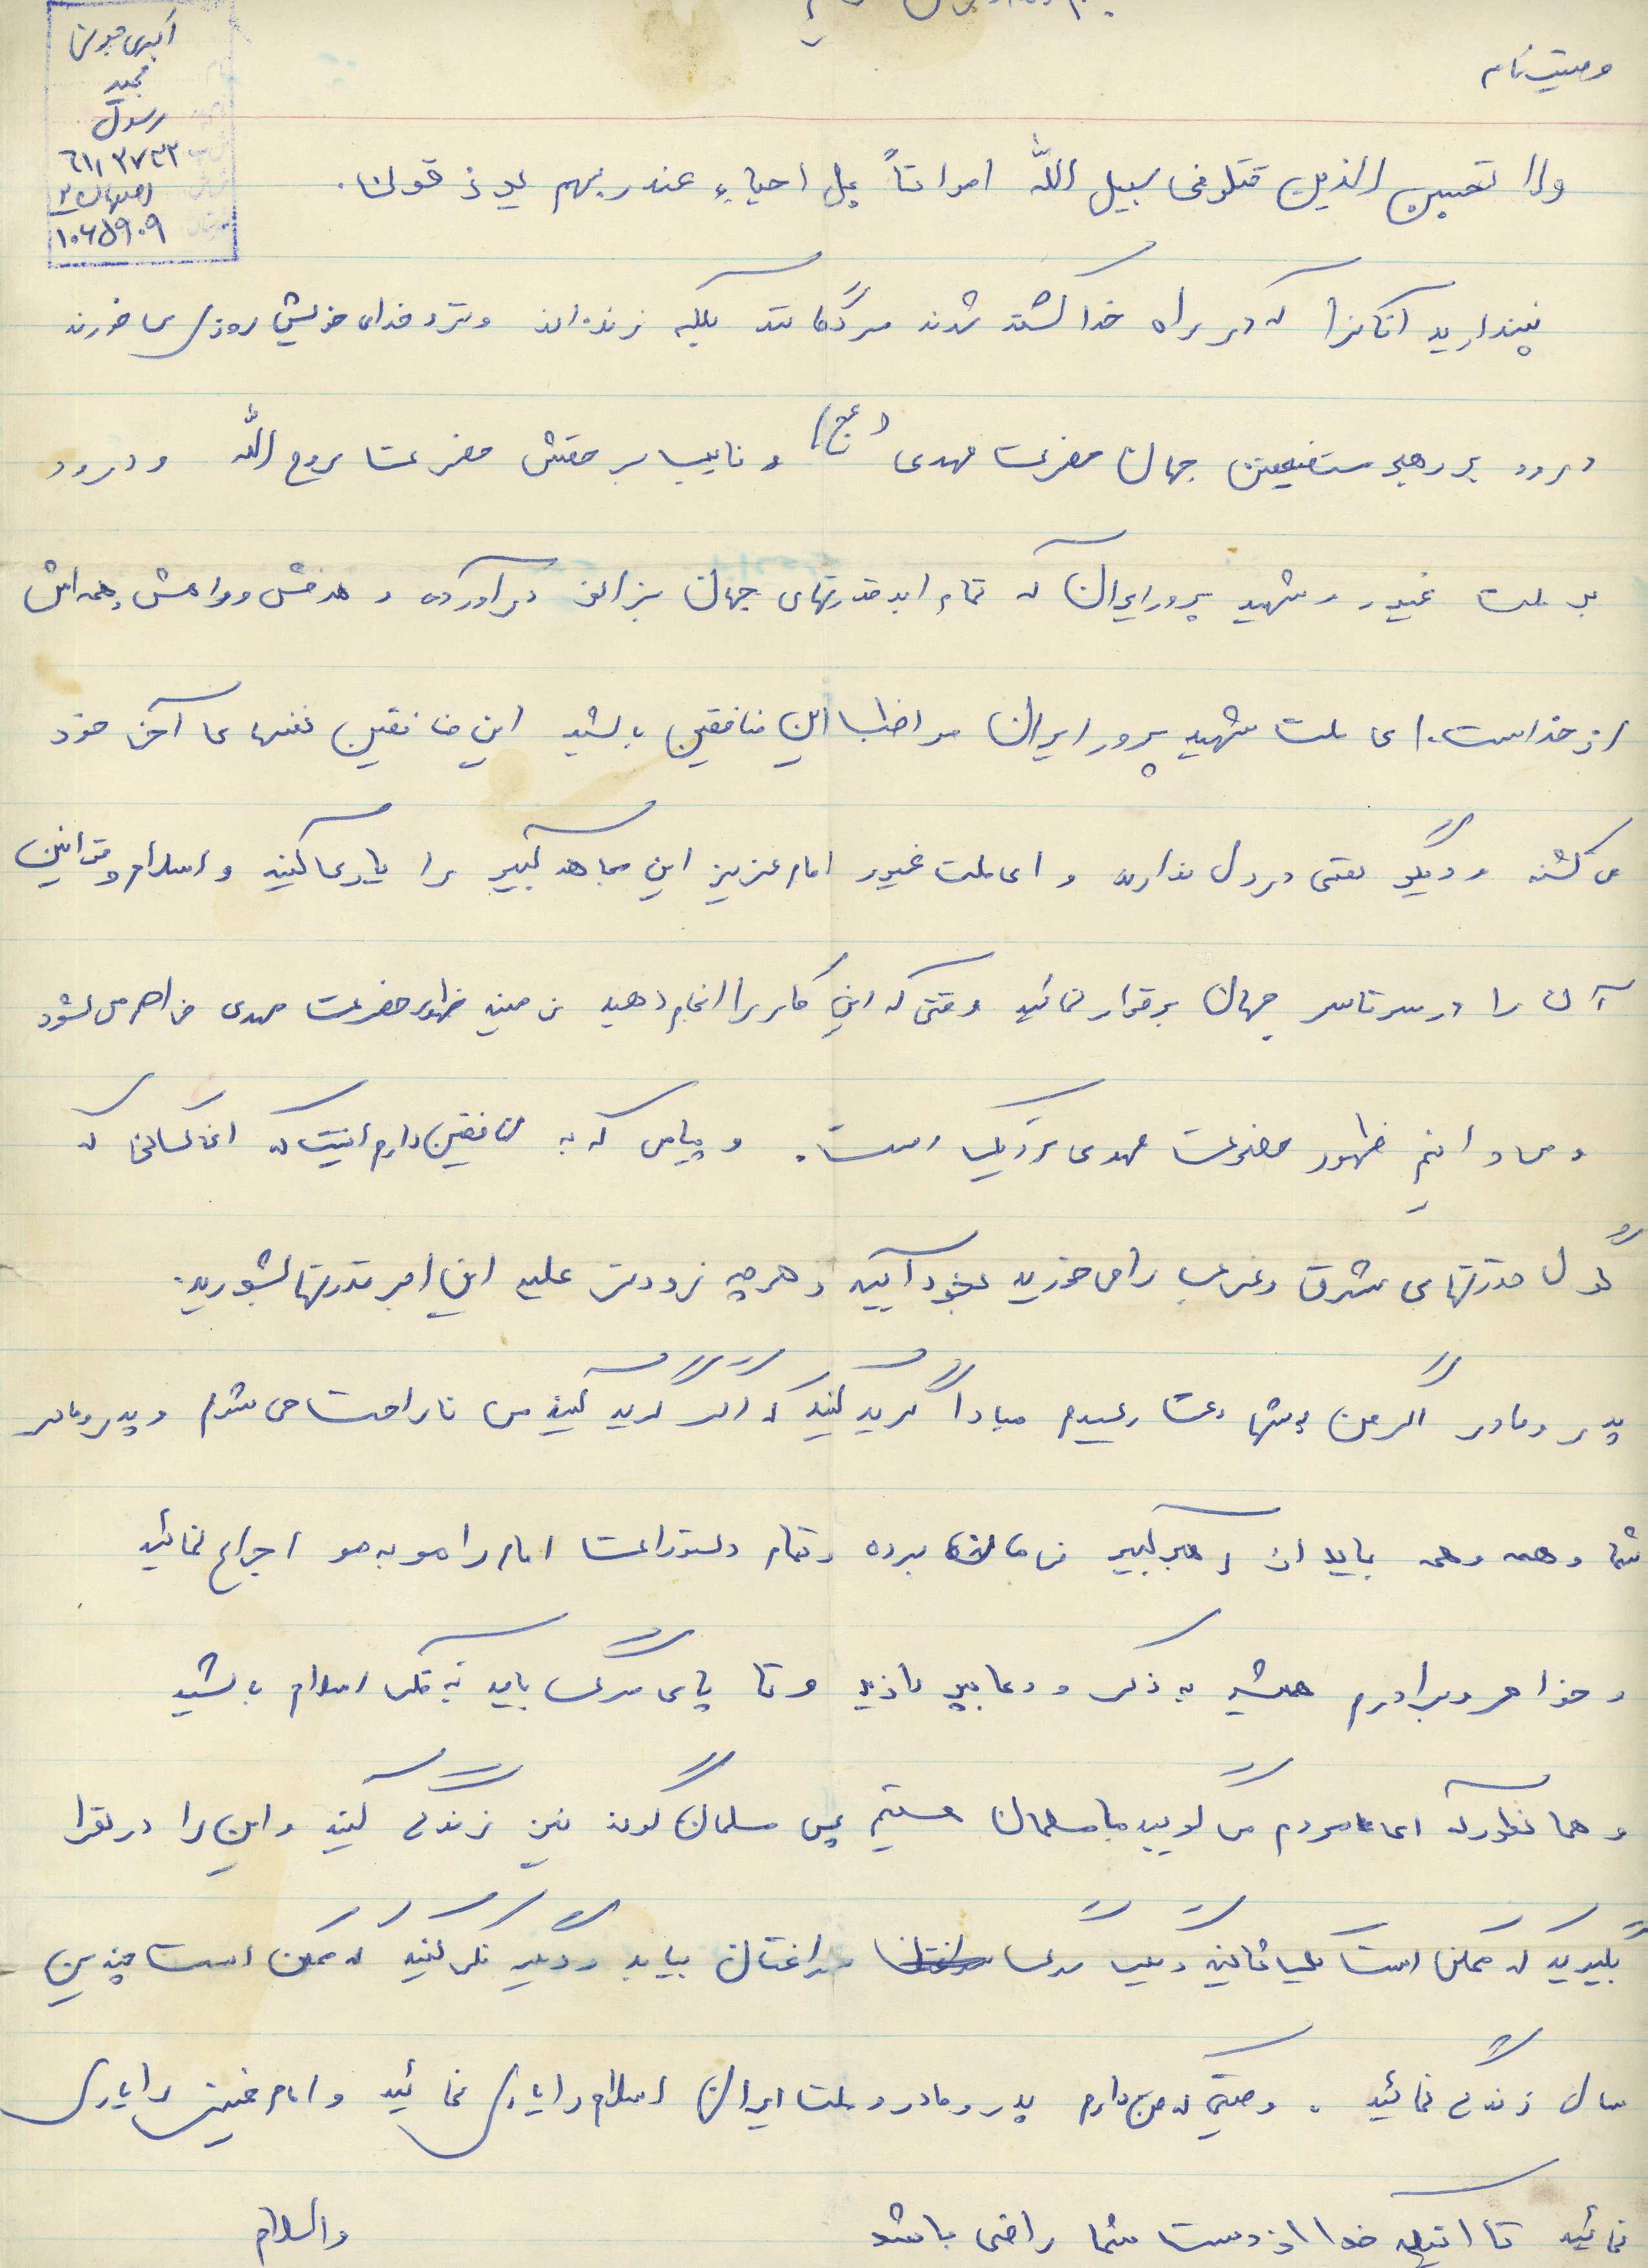 وصیتنامه
اکبری
مجید
رسول
۶۱/۳۷۲۳
اصفهان ۲
۱۰۶۵۹۰۹
ولا تحسبن الذین قتلو فی سبیل اللّه امواتاً بل احیاء عند ربهم یرذقون.
نپندارید آنانرا که در راه خدا کشته شدند مردگانند بلکه زنده‌اند و نزد خدای خویش روزی می خورند
درود بر رهبر مستضعفین جهان حضرت مهدی (عج) و نایب بر حقش حضرت روح اللّه و درود
بر ملت غیور و شهید پرور ایران که تمام ابرقدرتهای جهان بزانو درآورده و هدفش و راهش و همه اش
از خداست. ای ملت شهید پرور ایران مواظب این منافقین باشید این منافقین نفسهای آخر خود
می کشند و دیگر در دل ندارند و ای ملت غیور امام عزیز این مجاهد کبیر را یاری کنید و اسلام و قوانین
آن را در سرتاسر جهان برقرار نمائید وقتی که این کار را انجام دهید زمینه ظهور حضرت مهدی فراهم می شود
و می دانیم ظهور حضرت مهدی نزدیک است. و پیامی که به منافقین دارم اینست که ای کسانی که
گول قدرتهای شرق و غرب را می خورید بخود آیید و هرچه زودتر علیه این ابر قدرتها بشورید.
پدر و مادر اگر من بشهادت رسیدم مبادا گریه کنید که اگر گریه کنید من ناراحت می شوم و پدر و مادر
شما و همه و همه باید از رهبر کبیر فرمان برده و تمام دستورات امام را مو به مو اجراع نمائید
و خواهر و برادرم همیشه به ذکر و دعا بپردازید و تا پای مرگ باید به فکر اسلام باشید
و همانطور که ای مردم می گویید ما مسلمان هستیم پس مسلمان گونه نیز زندگی کنید و این را در نظر
بگیرید که ممکن است یک ثانیه دیگر مرگ سراغتان بیاید و دیگر فکر کنید که ممکن است چندین
سال زندگی نمائید. وصیتی که من دارم پدر و مادر و ملت ایران اسلام را یاری نمائید و امام خمینی را یاری
نمائید تا اینکه خدا از دست شما راضی باشد
والسلام